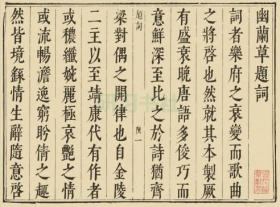 幽蘭草題詞
詞者樂府之衰變而歌曲
之將啟也然就其本製厥
有盛衰晚唐語多俊巧而
意鮮深至比之於詩猶齊
題詞 一
梁對偶之開律也自金陵
二主以至靖康代有作者
或穠纖婉麗極哀艷之情
或流暢澹逸窮盼倩之趣
然皆境繇情生辭隨意啟